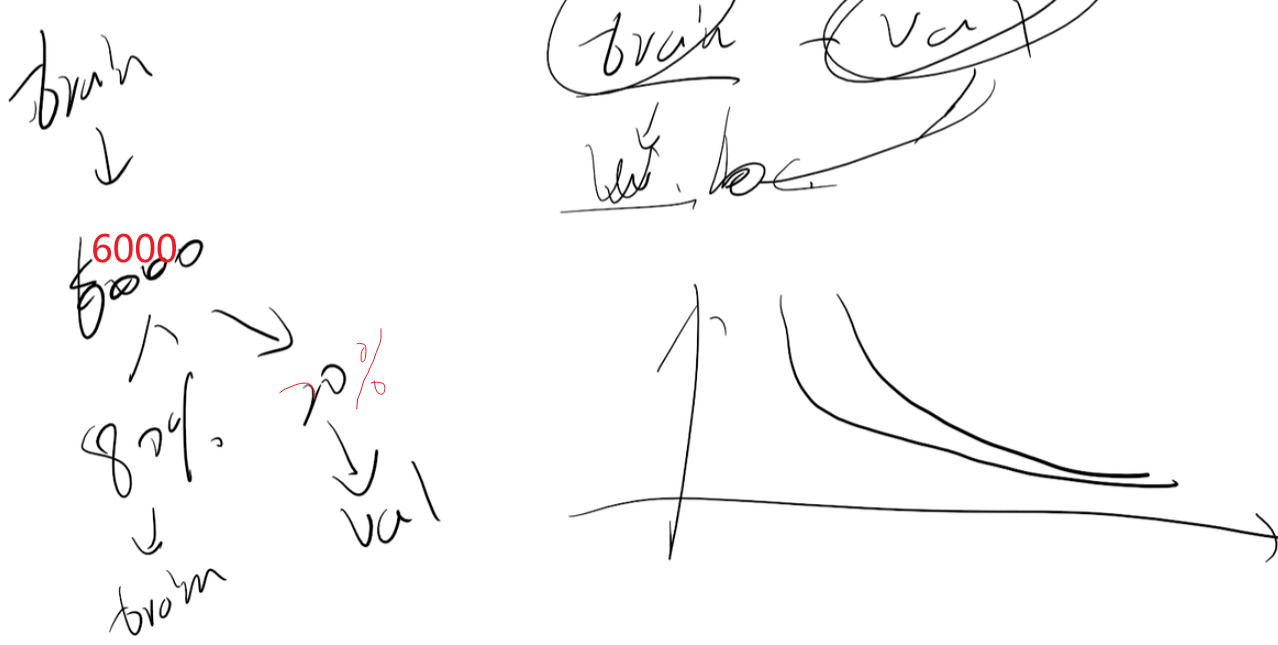 train
6000
6000
80%.
20%
train
val
train + val